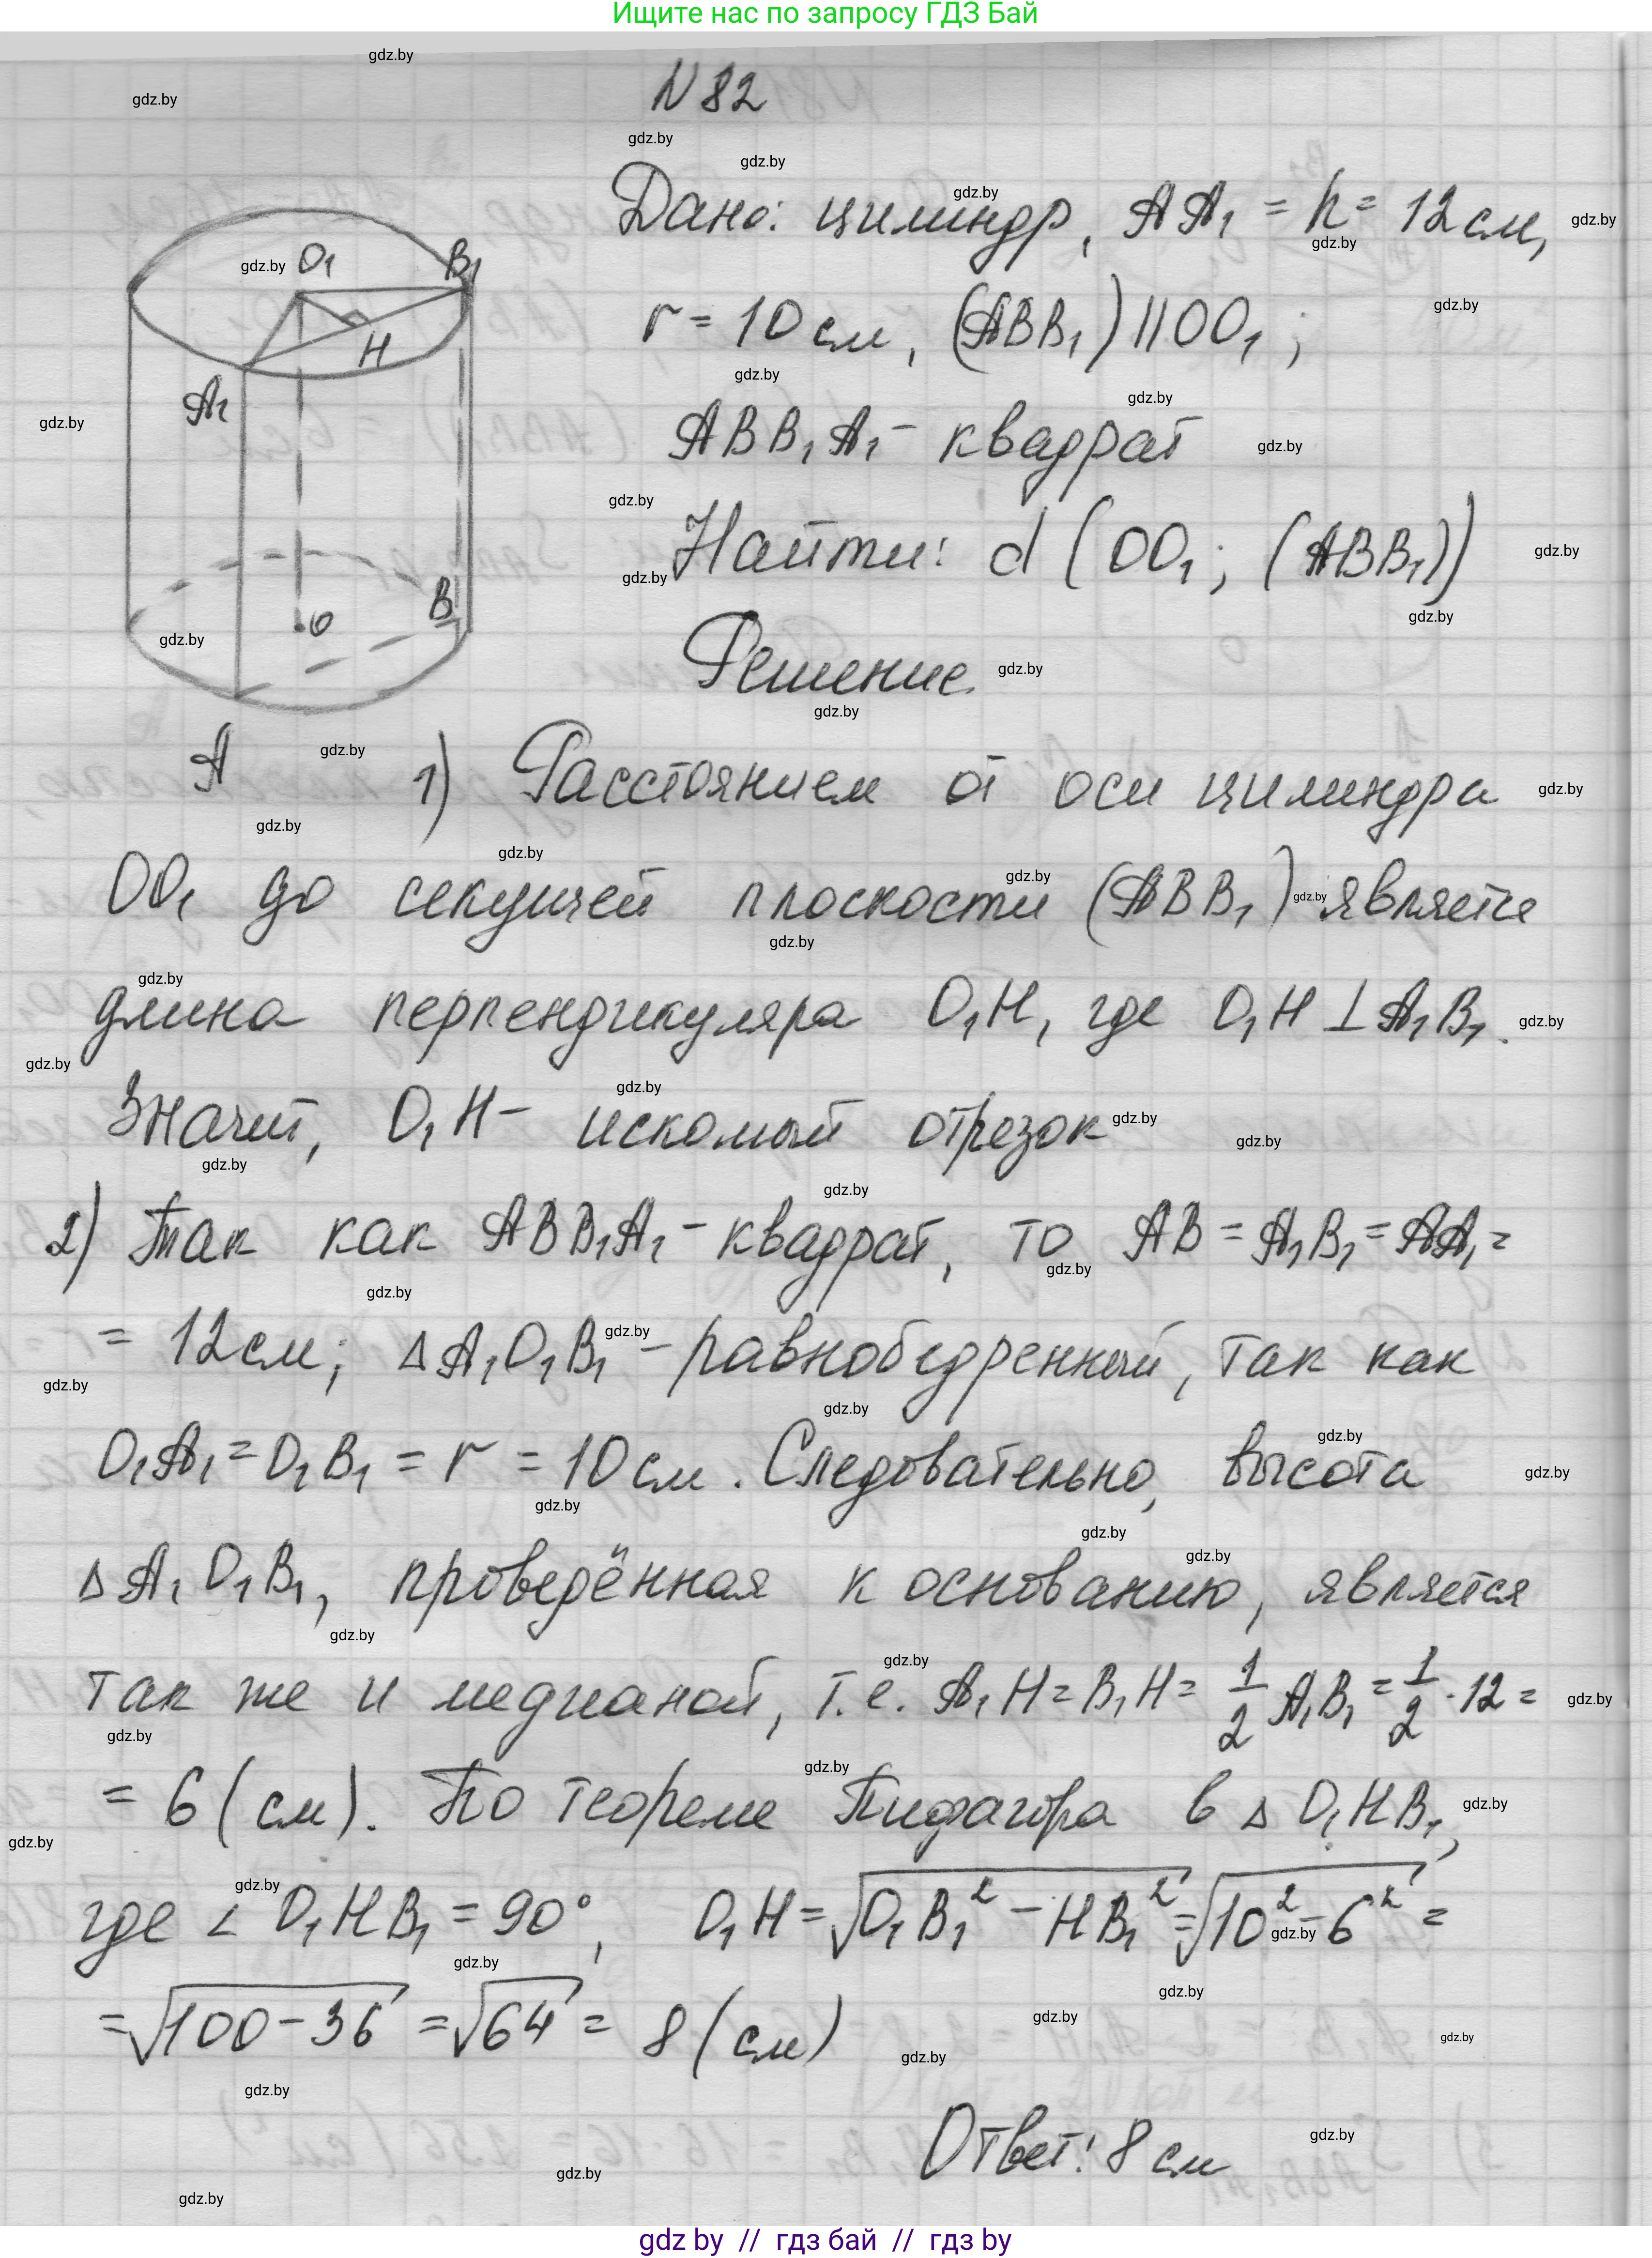 Ищите нас по запросу ГДЗ Бай
N 82
Дано: цилиндр, AA₁ = h = 12 см,
r = 10 см, (ABB₁) || OO₁ ;
ABB₁A₁ - квадрат
Найти: d (OO₁ ; (ABB₁))
Решение.
O₁ B₁
H
A₁
B
O
A
1) Расстоянием от оси цилиндра
OO₁ до секущей плоскости (ABB₁) является
длина перпендикуляра O₁H, где O₁H ⊥ A₁B₁.
Значит, O₁H - искомый отрезок
2) Так как ABB₁A₁ - квадрат, то AB = A₁B₁ = AA₁ =
= 12 см; Δ A₁O₁B₁ - равнобедренный, так как
O₁A₁ = O₁B₁ = r = 10 см. Следовательно, высота
Δ A₁O₁B₁, проведённая к основанию, является
так же и медианой, т.е. A₁H = B₁H = 1/2 A₁B₁ = 1/2 · 12 =
= 6 (см). По теореме Пифагора в Δ O₁HB₁,
где ∠ O₁HB₁ = 90°, O₁H = √(O₁B₁² - HB₁²) = √(10² - 6²) =
= √(100 - 36) = √64 = 8 (см)
Ответ: 8 см
gdz by // гдз бай // гдз by